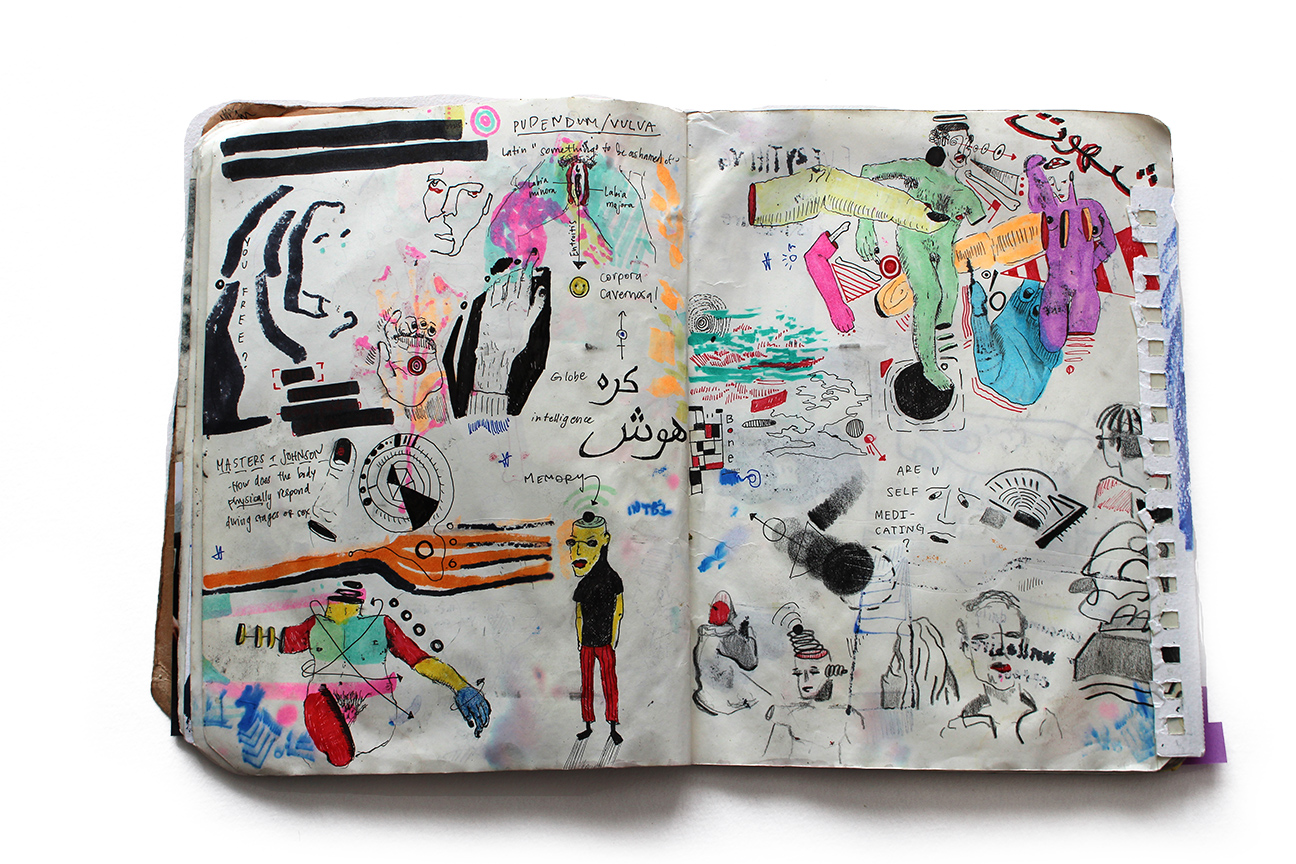 PUDENDUM/VULVA
Latin "something" to be ashamed of
Labia
minora
Labia
majora
YOU FREE?
corpora
Cavernosal
Globe
کره
intelligence
هوش
MASTERS & JOHNSON
-How does the body
physically respond
during stages of sex
MEMORY
شهوت
Bone
ARE U
SELF
MEDI-
CATING
?